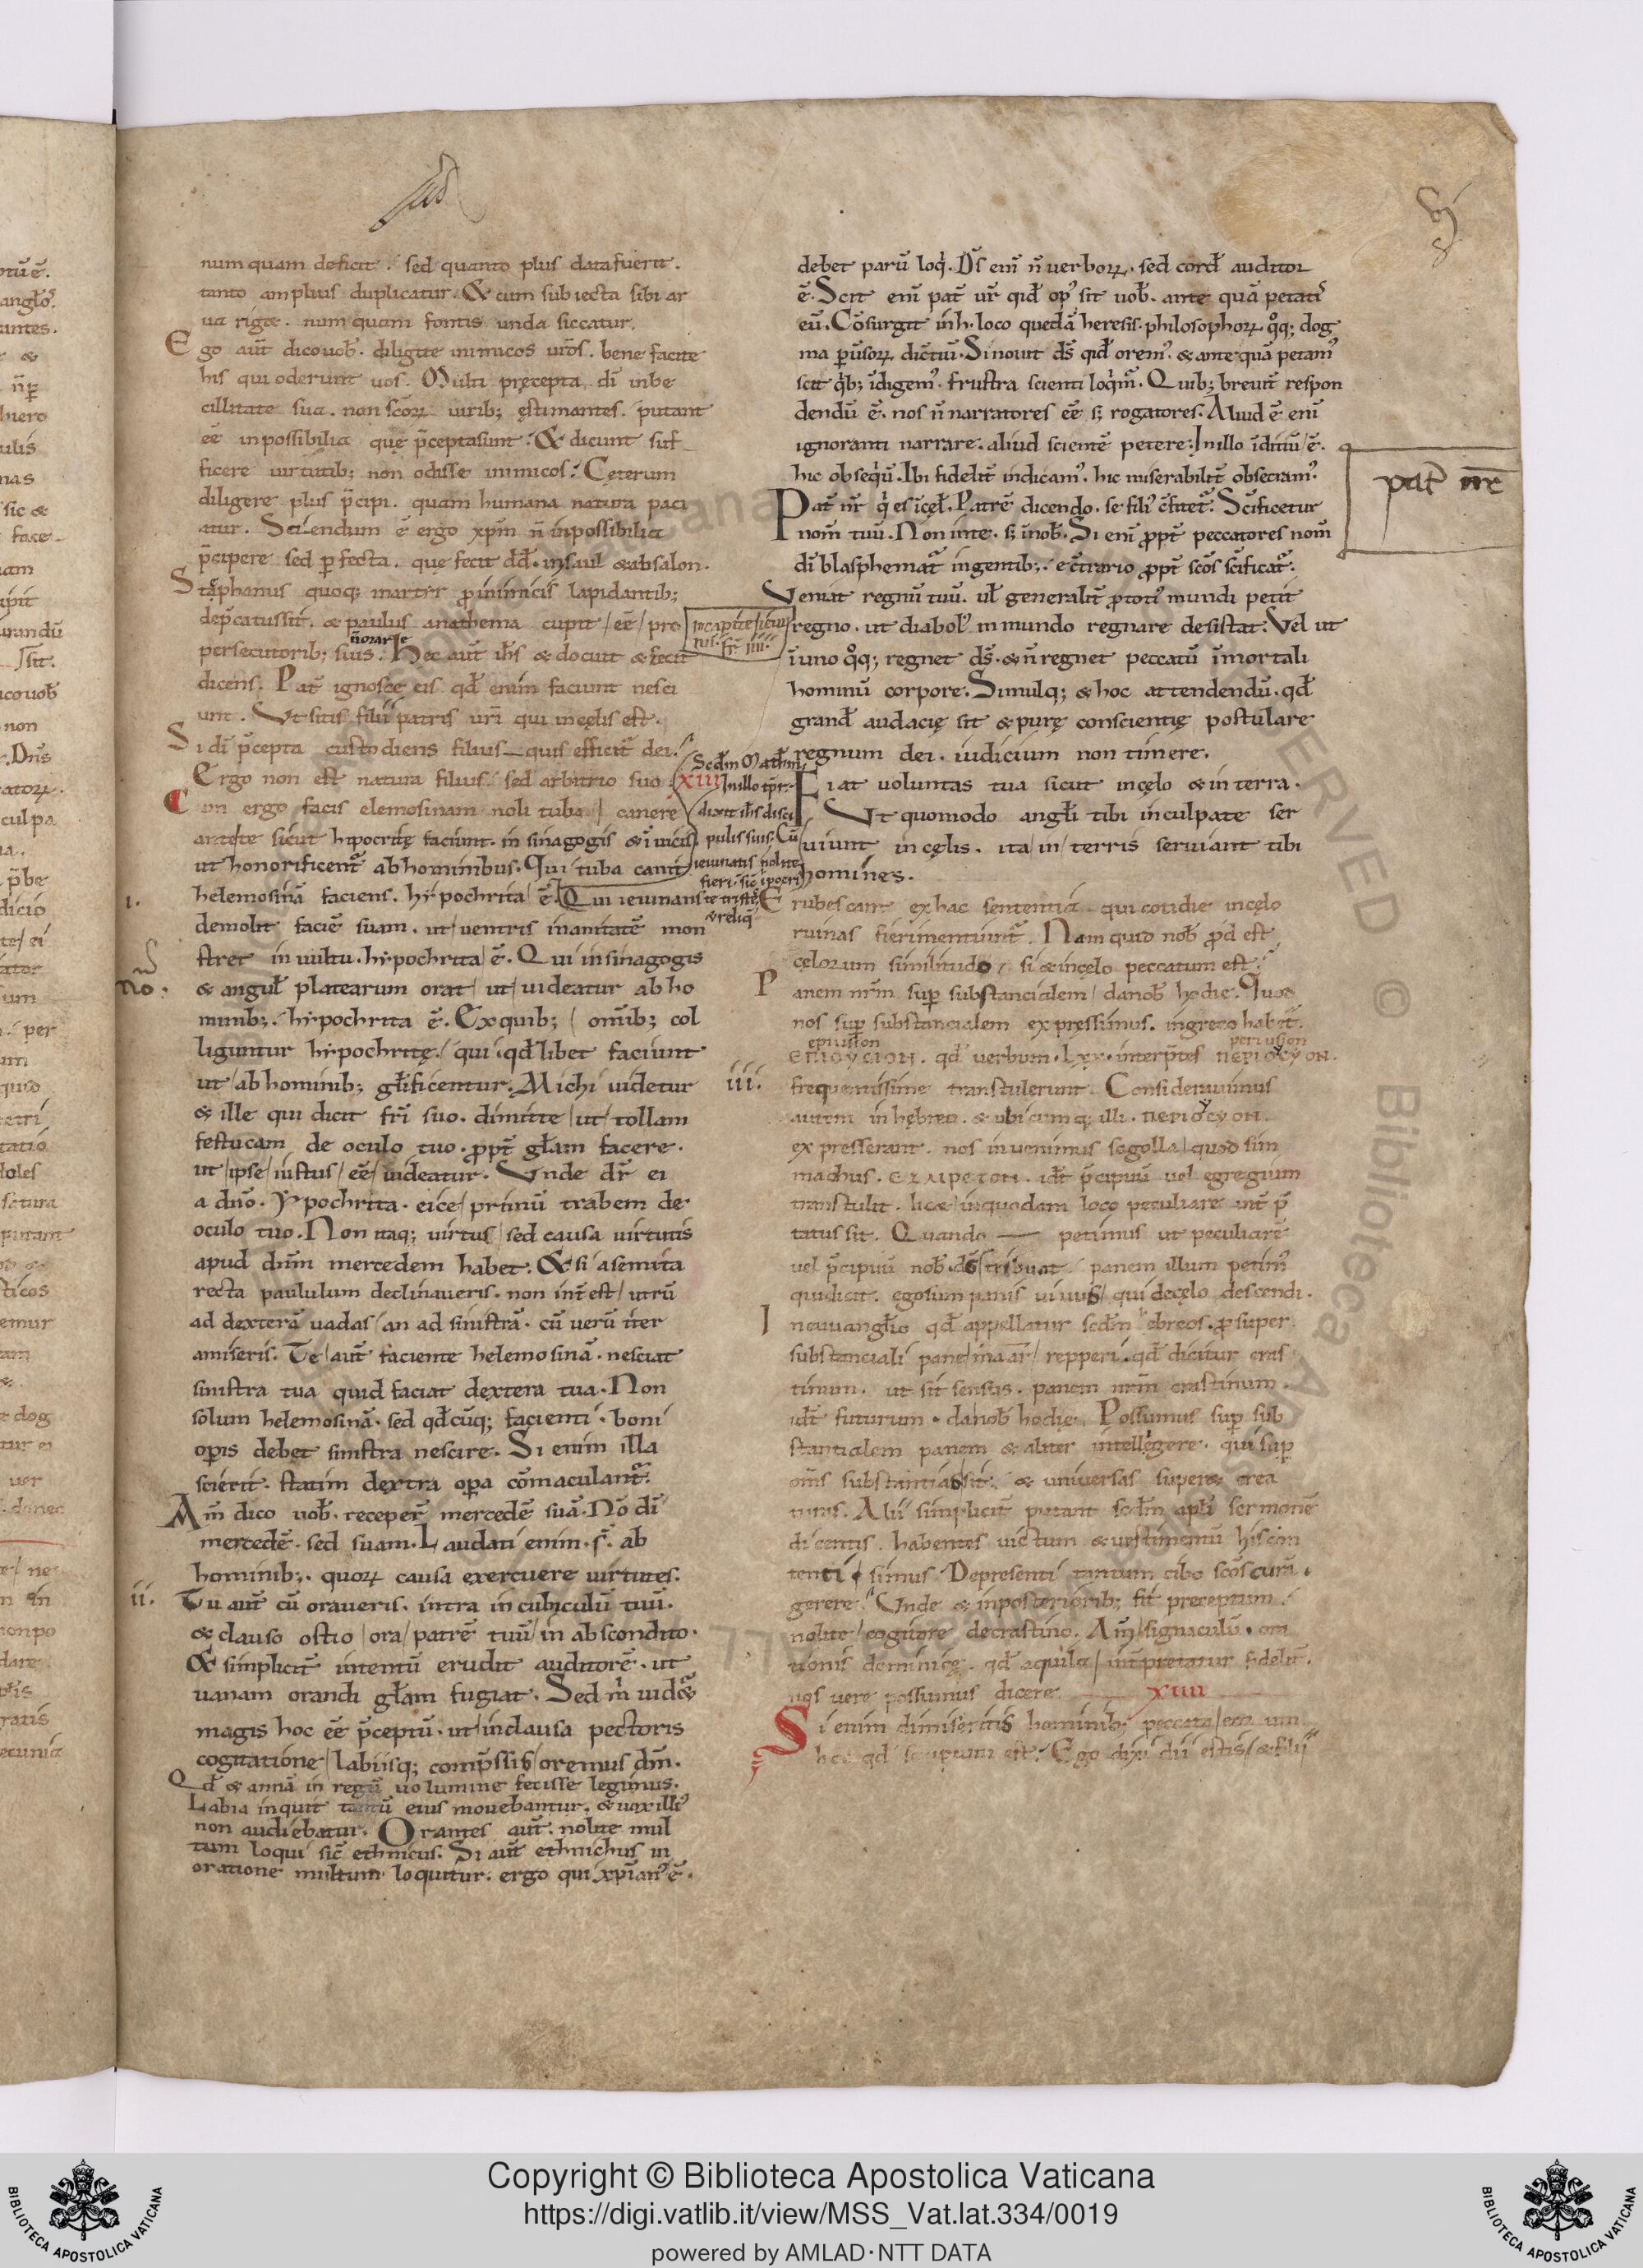 num quam deficit. sed quanto plus data fuerit.
tanto amplius duplicatur. & cum subiecta sibi ar
ua riget. num quam fontis unda siccatur.
Ego aut̄ dico uob̄. diligite inimicos ur̄os. bene facite
his qui oderunt uos. Multi pręcepta dī inbe
cillitate sua. non sc̄orꝝ uirib; ęstimantes. putant
eē inpossibilia quę p̄cepta sunt. & dicunt suf
ficere uirtutib; non odisse inimicos. Ceterum
diligere plus p̄cipi. quam humana natura paci
atur. Sciendum ē ergo xp̄m n̄ inpossibilia
p̄cipere sed ꝑfecta. que fecit dd̄. in saul & absalon.
Staephanus quoq; martyr ꝓ inimicis lapidantib;
dep̄catus sit. & paulus anathema cupit eē pro
persecutorib; suis. Hec aut ih̄s & docuit & fecit
dicens. Pat̄ ignosce eis qd̄ enim faciunt nesci
unt. Ut sitis filii patris ur̄i qui in cęlis est.
Si dī p̄cepta custodiens filius quis efficit̄ dei.
Ergo non est natura filius. sed arbitrio suo.
Cum ergo facis elemosinam noli tuba canere
ante te sicut hipocritę faciunt. in sinagogis & ī uicis
ut honorificent̄ ab hominibus. Qui tuba canit
helemosinā faciens. hypochrita ē. Qui ieiunans
demolit faciē suam. ut uentris inanitatē mon
stret in uultu. hypochrita ē. Qui in sinagogis
& angul̄ platearum orat ut uideatur ab ho
minib;. hypochrita ē. Ex quib; omīb; col
liguntur hypochritę. qui qd̄libet faciunt
ut ab hominib; gl̄ificentur. Michi uidetur
& ille qui dicit fr̄i suo. dimitte ut tollam
festucam de oculo tuo. ꝓpt̄ gl̄am facere.
ut ipse iustus eē uideatur. Unde dr̄ ei
a dn̄o. Ypochrita. eice primū trabem de
oculo tuo. Non itaq; uirtus sed causa uirtutis
apud dn̄m mercedem habet. & si a semita
recta paululum declinaueris. non int̄ est utrū
ad dexterā uadas an ad sinistrā. cū uerū iter
amiseris. Te aut̄ faciente helemosinā. nesciat
sinistra tua quid faciat dextera tua. Non
solum helemosinā. sed qd̄cūq; facienti boni
opis debet sinistra nescire. Si enim illa
scierit. statim dextra oꝑa cōmaculant̄.
Am̄ dico uob̄. receper̄ mercedē suā. Nō dī
mercedē. sed suam. Laudati enim s̄. ab
hominib;. quorꝝ causa exercuere uirtutes.
Tu aut̄ cū oraueris. intra in cubiculū tuū.
& clauso ostio ora patrē tuū in abscondito.
& simplicit̄ intentū erudit auditorē. ut
uanam orandi gl̄am fugiat. Sed m̄ uidet̄
magis hoc eē p̄ceptū. ut inclausa pectoris
cogitatione labiisq; comp̄ssis oremus dn̄m.
Qd̄ & annā in regū uolumine fecisse legimus.
Labia inquit tantū eius mouebantur. & uox illi'
non audiebatur. Orantes aut̄. nolite mul
tum loqui sic̄ ethnicus. Si aut̄ ethnichus in
oratione multum loquitur. ergo qui xp̄ian' ē.
i.
No.
ii.
Scd̄m Math̄m
XIII In illo tp̄r.
dixit ih̄s disci
pulis suis. Cū
ieiunatis nolite
fieri sic̄ ipocri
te tristes
& reliq̄
debet parū loq̇. Ds̄ eni n̄ uerborꝝ. sed cord̄ auditor
ē. Scit eni pat̄ ur̄ qid̄ op' sit uob̄. ante quā petati'
eū. Cōsurgit in h̄. loco quedā heresis. philosophorꝝ qq; dog
ma puersorꝝ dictiū. Si nouit ds̄ qid̄ orem'. & ante quā petam'
scit qib; idigem'. frustra scienti loqim̄. Quib; breuit̄ respon
dendū ē. nos n̄ narratores eē s; rogatores. Aliud ē enī
ignoranti narrare. aliud scientē petere. In illo iditiū ē.
hic obseqū. Ibi fidelit̄ indicam'. hic miserabilit̄ obsecram'.
Pat̄ nr̄ q̇ es i cęl̄. Patrē dicendo. se fili' c̄fitet̄. Sc̄ificetur
nom̄ tuū. Non in te. s; i nob̄. Si enī ꝓpt̄ peccatores nom̄
dī blasphemat̄ in gentib;. ec̄trario ꝓpt̄ sc̄os sc̄ificat̄.
Veniat regnū tuū. ul̄ generalit̄ ꝓ toti' mundi petit
regno. ut diabol' in mundo regnare desistat. Vel ut
ī uno qq; regnet ds̄. & n̄ regnet peccatū ī mortali
hominū corpore. Simulq; & hoc attendendū. qd̄
grand̄ audacię sit & purę conscientię postulare
regnum dei. iudicium non timere.
Fiat uoluntas tua sicut in cęlo & in terra.
Ut quomodo angl̄i tibi inculpate ser
uiunt in cęlis. ita in terris seruiant tibi
homines.
Erubescant ex hac sententia qui cotidie in cęlo
ruinas fieri mentiunt̄. Nam quid nob̄ ꝓd est
cęlorum similitudo, si & in cęlo peccatum est.
Panem nr̄m suꝑ substancialem da nob̄ hodie. Quod
nos suꝑ substancialem expressimus. in greco habet̄.
epiusion periusion
ΕΠΙΟΥCΙΟΝ. qd̄ uerbum. Lxx. interp̄tes ΠΕΡΙΟΥCΥΟΝ.
frequentissime transtulerunt. Considerauimus
autem in hębreo. & ubicumq; illi. ΠΕΡΙΟΥCΥΟΝ.
expresserunt. nos inuenimus sogolla quod sim
machus. idt̄ p̄cipuū uel egregium
transtulit. licet in quodam loco peculiare int̄ p̄
tatus sit. Quando petimus ut peculiarē
uel p̄cipuū nob̄ ds̄ tribuat. panem illum petim'
qui dicit. ego sum panis uiuus qui de cęlo descendi.
In euuangl̄io qd̄ appellatur scd̄m ebreos. ꝓ super
substanciali pane repperi. qd̄ dicitur cras
tinum. ut sit sensus. panem nr̄m crastinum.
idt̄ futurum. da nob̄ hodie. Possumus suꝑ sub
stantialem panem & aliter intellegere. qui suꝑ
om̄s substantias sit. & uniuersas superet crea
turas. Alii simplicit̄ putant scd̄m apl̄i sermonē
dicentis. habentes uictum & uestimentū his con
tenti simus. De presenti tantum cibo sc̄os curā.
gerere. Unde & in posteriorib; sit preceptum.
nolite cogitare de crastino. Am̄ signaculū. ora
tionis dominicę. qd̄ aquila int̄pretatur fidelit̄.
nos uere possumus dicere. XIIII
Si enim dimiseritis hominib; peccata eorum
hoc qd̄ scriptum est. Ego dixi dii estis & filii
iii.
pat̄ nr̄
Copyright © Biblioteca Apostolica Vaticana
https://digi.vatlib.it/view/MSS_Vat.lat.334/0019
powered by AMLAD·NTT DATA
BIBLIOTECA APOSTOLICA VATICANA
BIBLIOTECA APOSTOLICA VATICANA